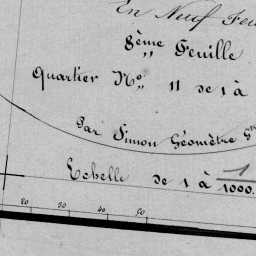 En Neuf Feu
8ème Feuille
Quartier No 11 de 1 à
Par Simon Géomètre
Echelle de 1 à 1/1000.
20 30 40 50